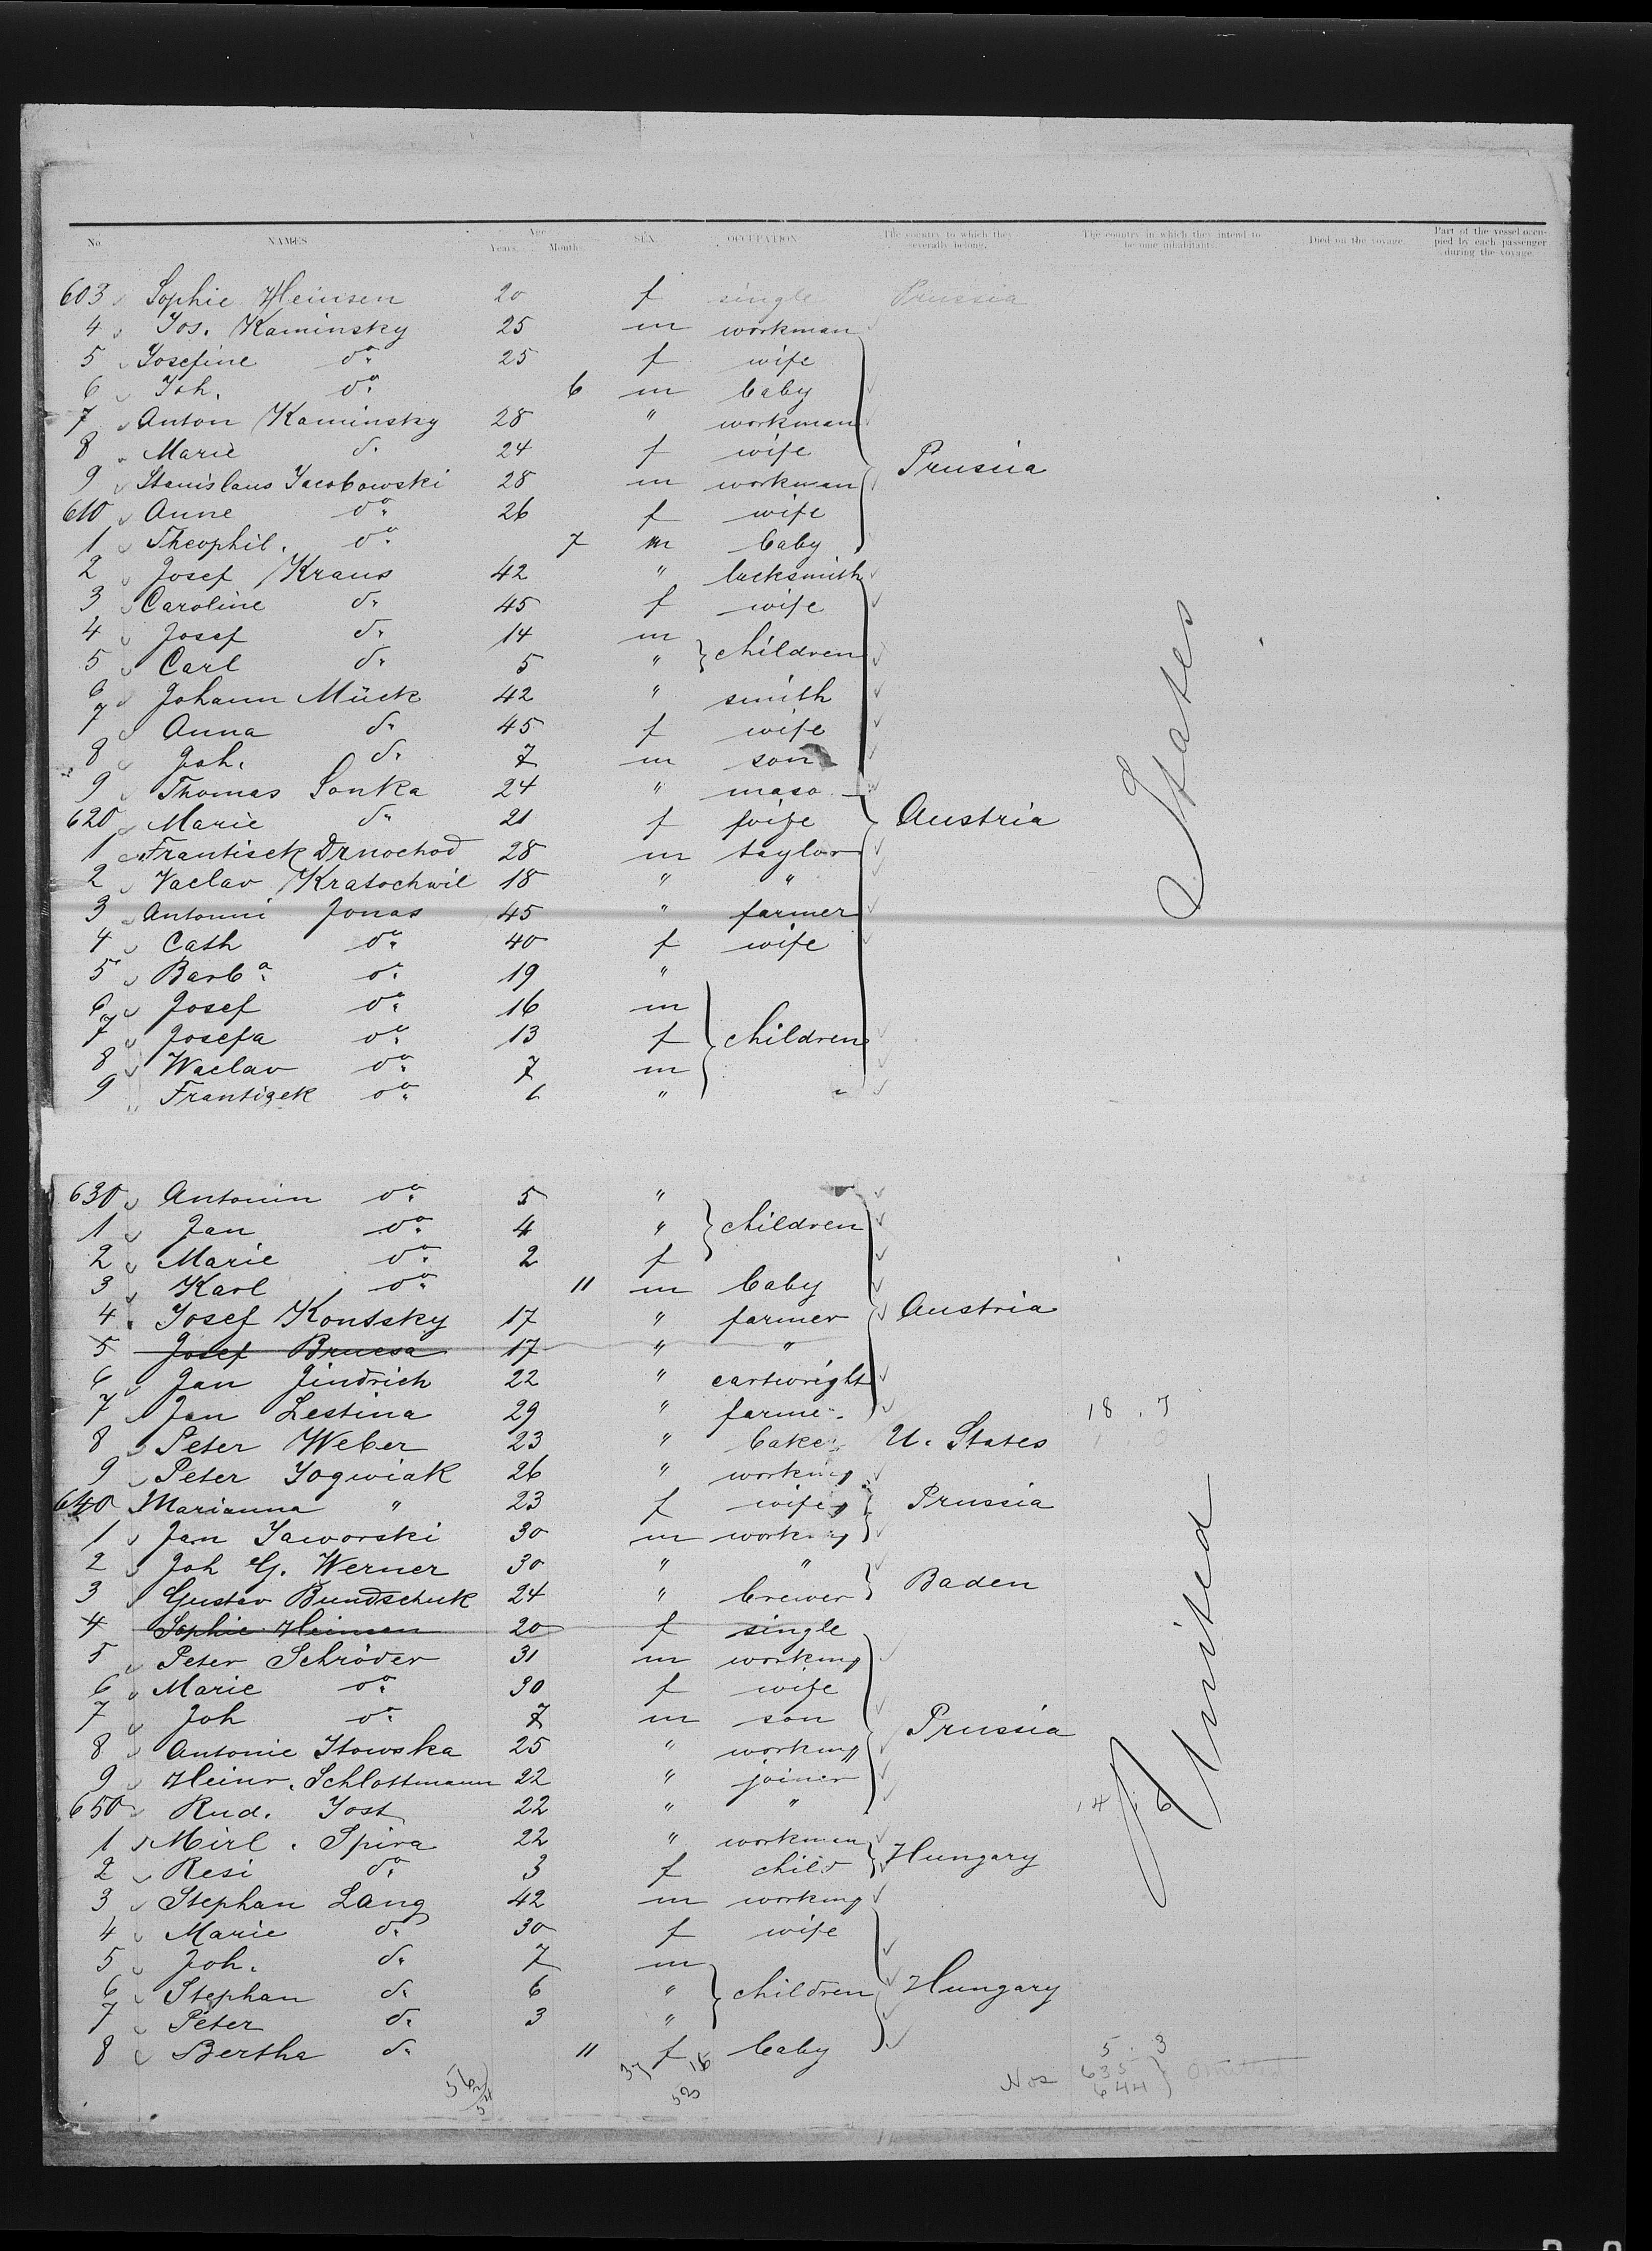 No. NAMES Age Years. Months. SEX. OCCUPATION The country to which they severally belong. The country in which they intend to become inhabitants. Died on the voyage. Part of the vessel occupied by each passenger during the voyage.
603 Sophie Heinsen 20 f single Prussia
4 Jos. Kaminsky 25 m workman
5 Josefine do. 25 f wife
6 Joh. do. 6 m baby
7 Anton Kaminsky 28 " workman
8 Marie d. 24 f wife
Prussia
9 Stanislaus Jacobowski 28 m workman
610 Anne do. 26 f wife
1 Theophil. do. 7 m baby
2 Josef Kraus 42 " locksmith
3 Caroline d. 45 f wife
4 Josef d. 14 m
5 Carl d. 5 " children
6 Johann Mück 42 " smith
7 Anna d. 45 f wife
8 Joh. d. 7 m son
9 Thomas Sonka 24 " maso
620 Marie d. 21 f wife Austria
1 Frantisek Drnochod 28 m taylor
2 Vaclav Kratochwil 18 " "
3 Antonni Jonas 45 " farmer
4 Cath do. 40 f wife
5 Barba. do. 19 "
6 Josef do. 16 m
7 Josefa do. 13 f children
8 Waclav do. 7 m
9 Frantizek do. 6 "
630 Antonin do. 5 "
1 Jan do. 4 " children
2 Marie do. 2 f
3 Karl do. 11 m baby
4 Josef Kontsky 17 " farmer Austria
5 Josef Brucsa 17 " "
6 Jan Jindrich 22 " cartwright
7 Jan Lestina 29 " farme
18 . 7
8 Peter Weber 23 " bake U. States
9 Peter Jogwiak 26 " working
640 Marianna " 23 f wife Prussia
1 Jan Jaworski 30 m working
2 Joh G. Werner 30 " "
3 Gustav Bundschuk 24 " brewer Baden
4 Sophie Heinsen 20 f single
5 Peter Schröder 31 m working
6 Marie do. 30 f wife
7 Joh do. 7 m son Prussia
8 Antonie Itowska 25 " working
9 Heinr. Schlottmann 22 " joiner
650 Rud. Jost 22 " " 14 . 6
1 Mirl. Spira 22 " workman
2 Resi do. 3 f child Hungary
3 Stephan Lang 42 m working
4 Marie d. 30 f wife
5 Joh. d. 7 m
6 Stephan d. 6 " children Hungary
7 Peter d. 3 "
8 Bertha d. 11 f baby
5 . 3
37 16
53
Nos 635
644 Omitted
United States